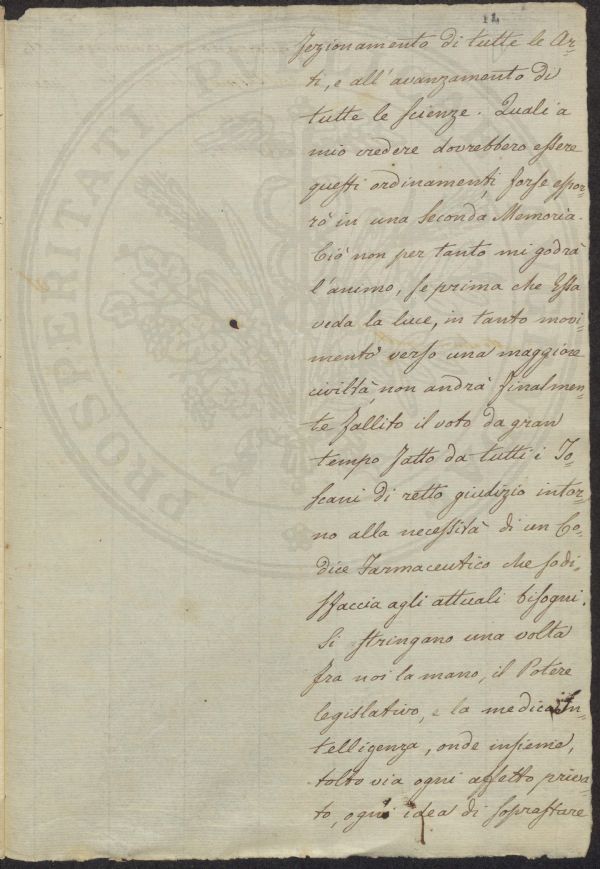 11
fezionamento di tutte le Ar-
ti, e all'avanzamento di
tutte le scienze. Quali a
mio credere dovrebbero essere
questi ordinamenti, forse espor-
rò in una seconda Memoria.
Ciò non per tanto mi godrà
l'animo, se prima che Essa
veda la luce, in tanto movi-
mento verso una maggiore
civiltà, non andrà finalmen-
te fallito il voto da gran
tempo fatto da tutti i To-
scani di retto giudizio intor-
no alla necessità di un Co-
dice Farmaceutico che sodi-
sfaccia agli attuali bisogni.
Si stringano una volta
fra noi la mano, il Potere
legislativo, e la medica In-
telligenza, onde insieme,
tolto via ogni affetto priva-
to, ogni idea di soprastare
PROSPERITATI PUBL